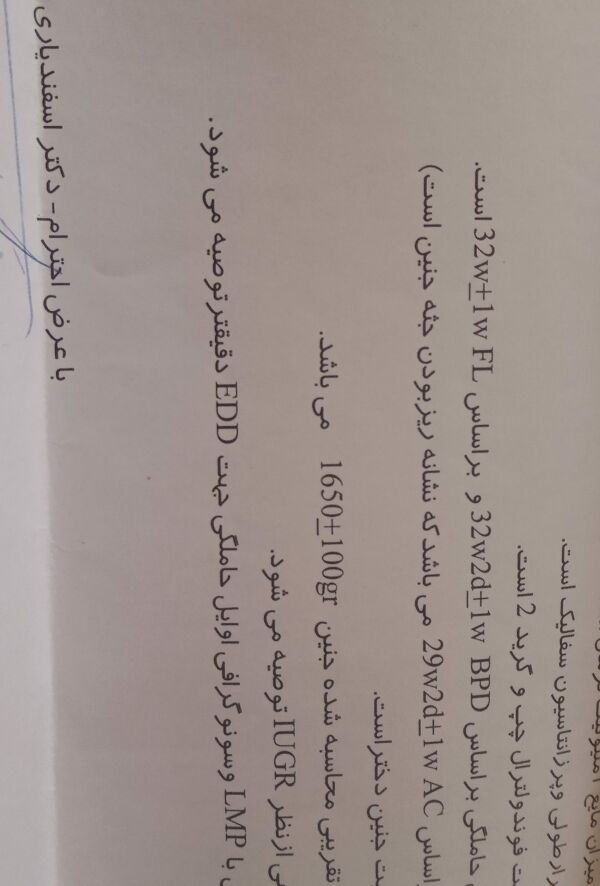 میزان مایع آمنیوتیک
طولی وپرزانتاسیون سفالیک است.
فوندولترال چپ و گرید 2 است.
حاملگی براساس 32w2d±1w BPD و براساس 32w±1w FL است.
29w2d±1w AC می باشد که نشانه ریزبودن جثه جنین است)
جنین دختراست.
تقریبی محاسبه شده جنین 1650±100gr می باشد.
ازنظر IUGR توصیه می شود.
با LMP وسونوگرافی اوایل حاملگی جهت EDD دقیقتر توصیه می شود.
با عرض احترام- دکتر اسفندیاری